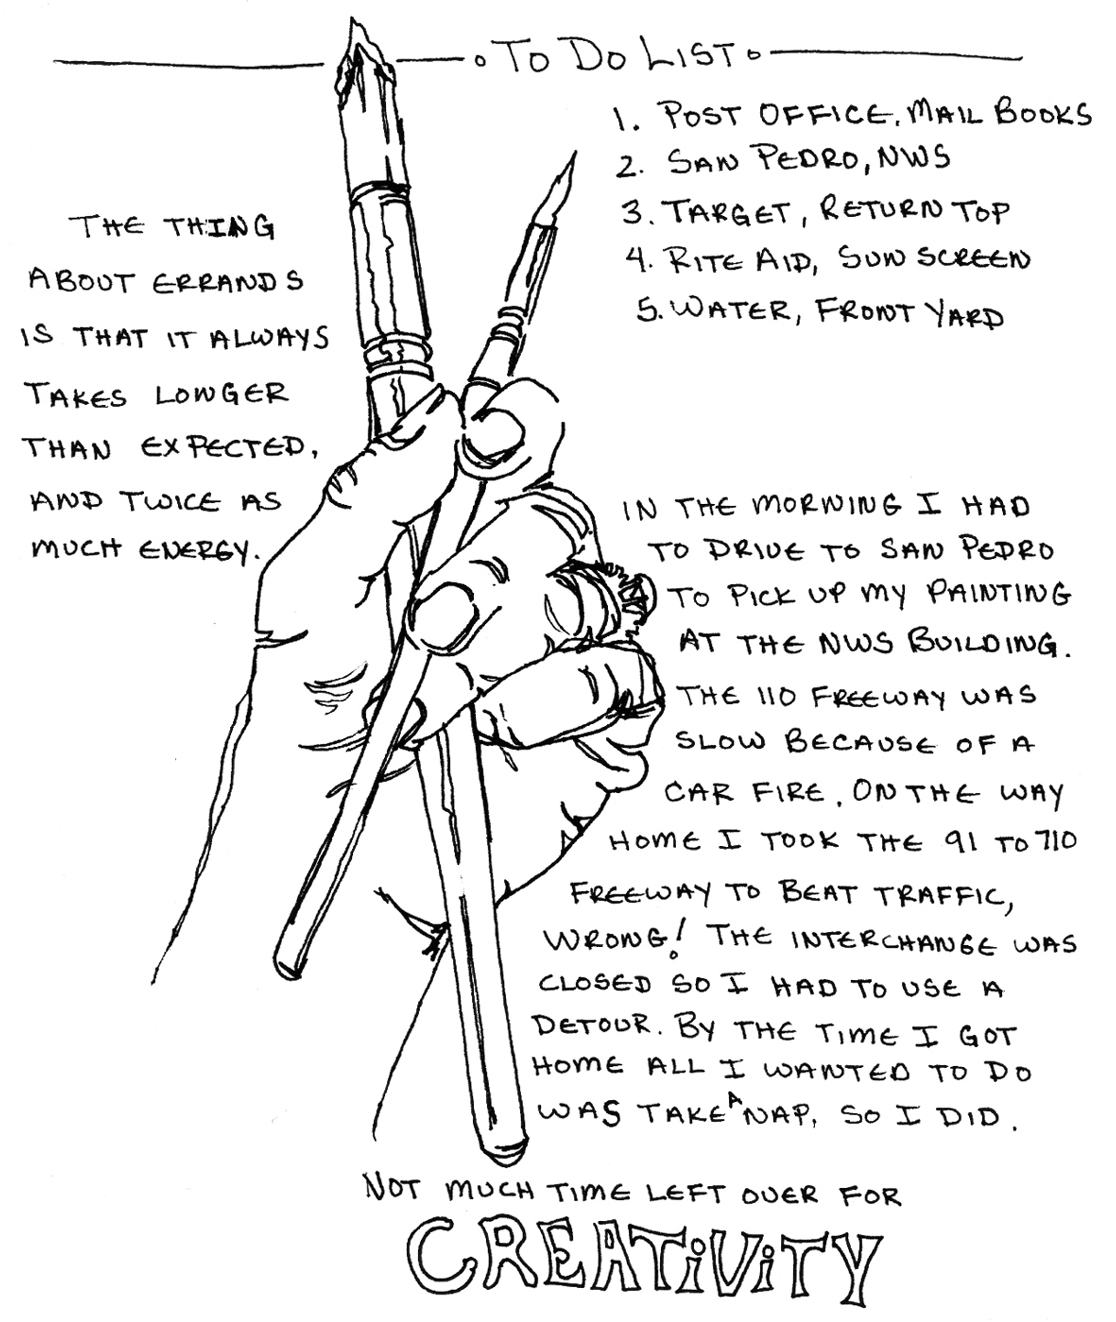 To Do List
1. Post Office, Mail Books
2. San Pedro, NWS
3. Target, Return Top
4. Rite Aid, Sun Screen
5. Water, Front Yard
The thing
about errands
is that it always
takes longer
than expected,
and twice as
much energy.
In the morning I had
to drive to San Pedro
to pick up my painting
at the NWS Building.
The 110 freeway was
slow because of a
car fire. On the way
home I took the 91 to 710
freeway to beat traffic,
wrong! The interchange was
closed so I had to use a
detour. By the time I got
home all I wanted to do
was take a nap, so I did.
Not much time left over for
CREATiViTY